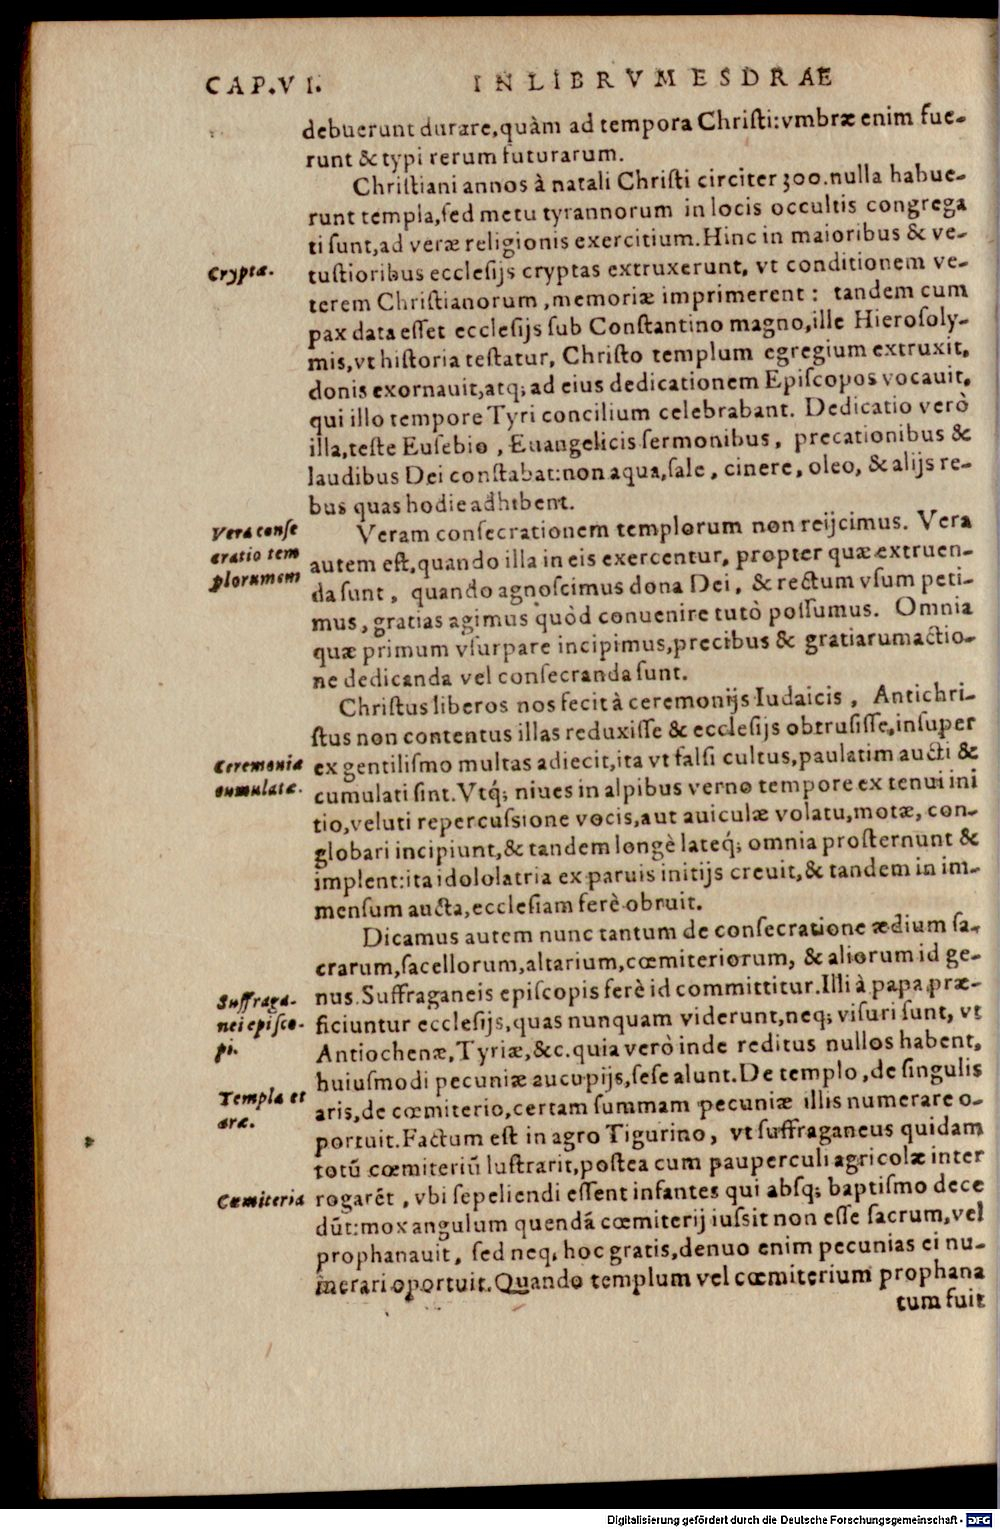 CAP. VI. IN LIBRVM ESDRAE
debuerunt durare, quàm ad tempora Christi: vmbræ enim fue-
runt & typi rerum futurarum.
Christiani annos à natali Christi circiter 300. nulla habue-
runt templa, sed metu tyrannorum in locis occultis congrega
ti sunt, ad veræ religionis exercitium. Hinc in maioribus & ve-
Cryptæ.
tustioribus ecclesijs cryptas extruxerunt, vt conditionem ve-
terem Christianorum, memoriæ imprimerent: tandem cum
pax data esset ecclesijs sub Constantino magno, ille Hierosoly-
mis, vt historia testatur, Christo templum egregium extruxit,
donis exornauit, atq; ad eius dedicationem Episcopos vocauit,
qui illo tempore Tyri concilium celebrabant. Dedicatio verò
illa, teste Eusebio, Euangelicis sermonibus, precationibus &
laudibus Dei constabat: non aqua, sale, cinere, oleo, & alijs re-
bus quas hodie adhibent.
Vera conse
cratio tem
plorum em
Veram consecrationem templorum non reijcimus. Vera
autem est, quando illa in eis exercentur, propter quæ extruen-
da sunt, quando agnoscimus dona Dei, & rectum vsum peti-
mus, gratias agimus quòd conuenire tutò possumus. Omnia
quæ primum vsurpare incipimus, precibus & gratiarumactio-
ne dedicanda vel consecranda sunt.
Christus liberos nos fecit à ceremonijs Iudaicis, Antichri-
stus non contentus illas reduxisse & ecclesijs obtrusisse, insuper
Ceremoniæ
cumulatæ.
ex gentilismo multas adiecit, ita vt falsi cultus, paulatim aucti &
cumulati sint. Vtq́; niues in alpibus verno tempore ex tenui ini
tio, veluti repercussione vocis, aut auiculæ volatu, motæ, con-
globari incipiunt, & tandem longè lateq́; omnia prosternunt &
implent: ita idololatria ex paruis initijs creuit, & tandem in im-
mensum aucta, ecclesiam ferè obruit.
Dicamus autem nunc tantum de consecratione ædium sa-
crarum, sacellorum, altarium, cœmiteriorum, & aliorum id ge-
Suffraga-
nei episco-
pi.
nus. Suffraganeis episcopis ferè id committitur. Illi à papa præ-
ficiuntur ecclesijs, quas nunquam viderunt, neq; visuri sunt, vt
Antiochenæ, Tyriæ, &c. quia verò inde reditus nullos habent,
huiusmodi pecuniæ aucupijs, sese alunt. De templo, de singulis
Templa et
aræ.
aris, de cœmiterio, certam summam pecuniæ illis numerare o-
portuit. Factum est in agro Tigurino, vt suffraganeus quidam
totũ cœmiteriũ lustrarit, postea cum pauperculi agricolæ inter
Cœmiteria
rogarẽt, vbi sepeliendi essent infantes qui absq; baptismo dece
dũt: mox angulum quendã cœmiterij iussit non esse sacrum, vel
prophanauit, sed neq; hoc gratis, denuo enim pecunias ei nu-
merari oportuit. Quando templum vel cœmiterium prophana
tum fuit
Digitalisierung gefördert durch die Deutsche Forschungsgemeinschaft - DFG